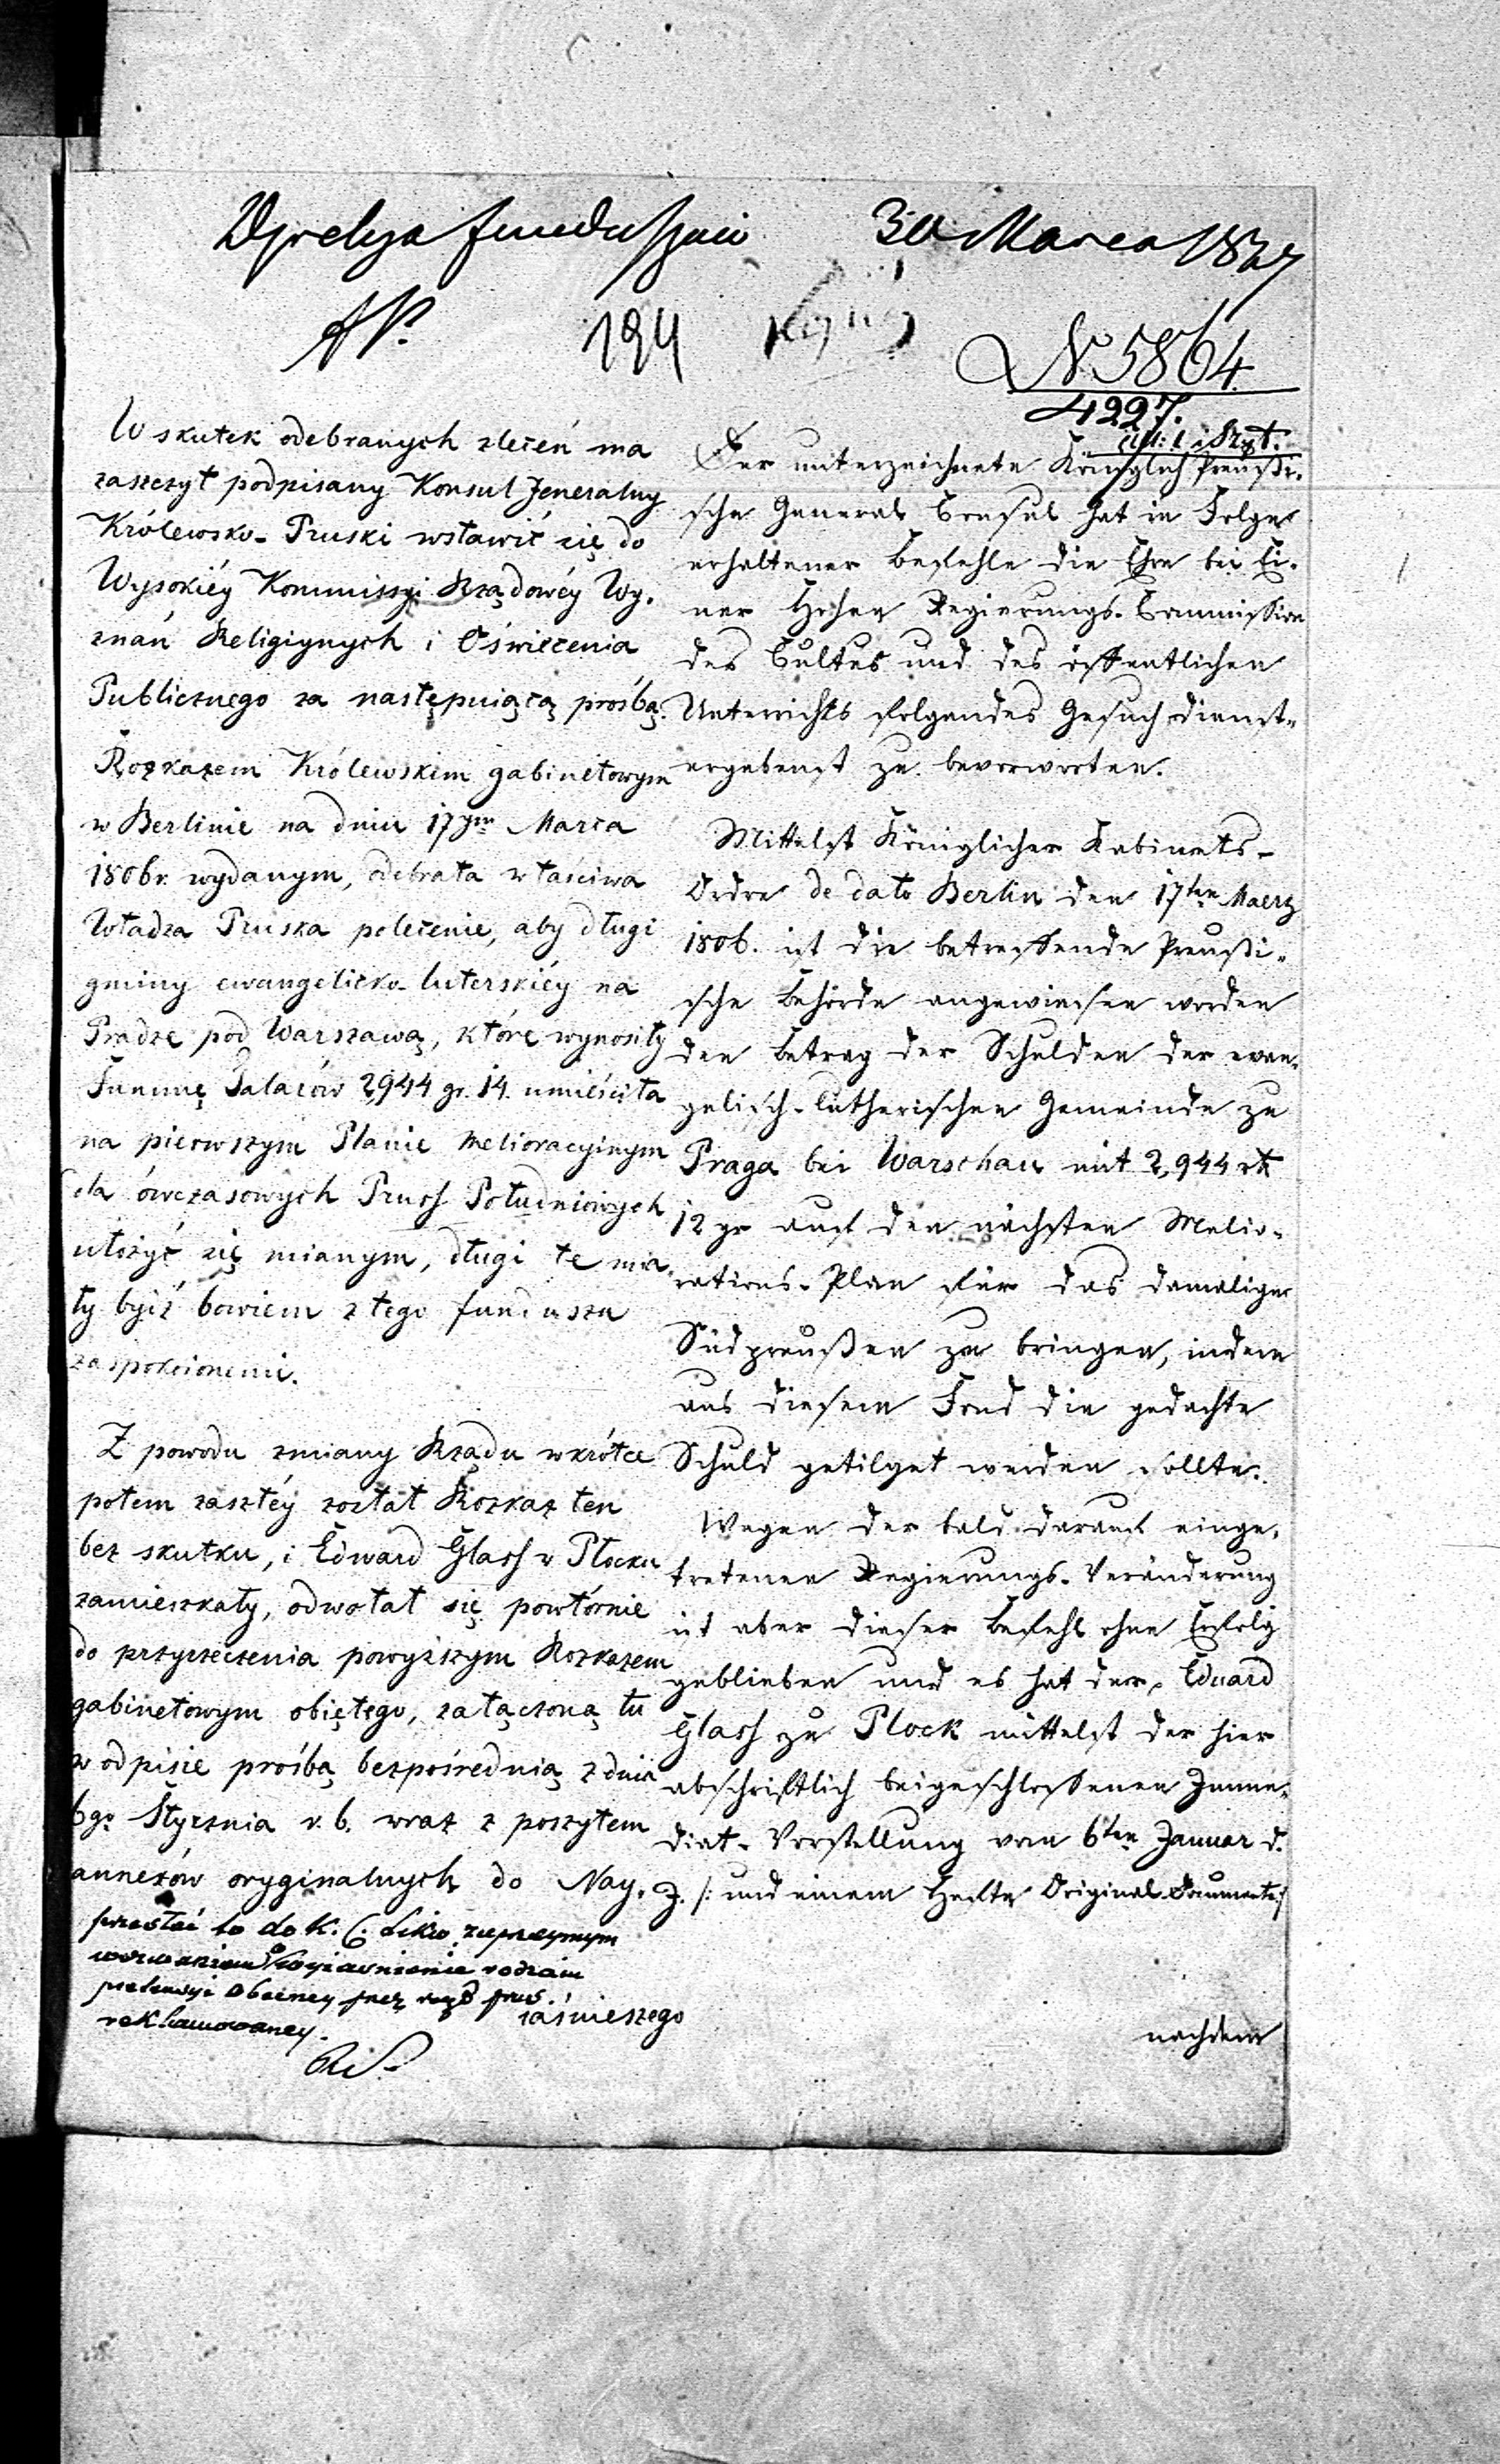 Dyrekcya funduszów 30 Marca 1827
194
N 5864
4227.
W skutek odebranych zleceń ma
zaszczyt podpisany Konsul Jeneralny
Królewsko-Pruski wstawić się do
Wysokiéy Kommissyi Rządowéy Wy-
znań Religiynych i Oświecenia
Publicznego za następuiącą prośbą.
Rozkazem Królewskim gabinetowym
w Berlinie na dniu 17ym Marca
1806 r. wydanym, odebrała właściwa
Władza Pruska polecenie, aby długi
gminy ewangelicko-luterskiéy na
Pradze pod Warszawą, które wynosiły
Summę Talarów 2,944 gr. 14. umieściła
na pierwszym Planie melioracyinym
dla ówczasowych Pruss Południowych
ułożyć się mianym, długi te mia-
ły być bowiem z tego funduszu
zaspokoionemi.
Z powodu zmiany Rządu wkrótce
potem zaszłéy został Rozkaz ten
bez skutku, i Edward Glass w Płocku
zamieszkały, odwołał się powtórnie
do przyrzeczenia powyższym Rozkazem
gabinetowym obiętego, załączoną tu
w odpisie prośbą bezpośrednią z dnia
6go Stycznia r. b. wraz z poszytem
annexów oryginalnych do Nay-
iaśnieszego
przesłać to do K.
rodzaiu
pretensyi obecney przez rząd prus.
reklamowaney.
Der unterzeichnete Königlich Preußi-
sche General Consul hat in Folge
erhaltener Befehle die Ehre bei Ei-
ner Hohen Regierungs-Commission
des Cultus und des öffentlichen
Unterrichts folgendes Gesuch dienst-
ergebenst zu bevorworten.
Mittelst Königlicher Kabinets-
Ordre de dato Berlin den 17ten Maerz
1806. ist die betreffende Preußi-
sche Behörde angewiesen worden
den Betrag der Schulden der evan-
gelisch-lutherischen Gemeinde zu
Praga bei Warschau mit 2,944 rt
12 gr auf den nächsten Melio-
rations-Plan für das damalige
Südpreußen zu bringen, indem
aus diesem Fond die gedachte
Schuld getilget werden sollte.
Wegen der bald darauf einge-
tretenen Regierungs-Veränderung
ist aber dieser Befehl ohne Erfolg
geblieben und es hat der Eduard
Glass zu Plock mittelst der hier
abschriftlich beigeschlossenen Imme-
diat-Vorstellung vom 6ten Januar d.
J. /: und einem Hefte Original-Documente :/
nachdem